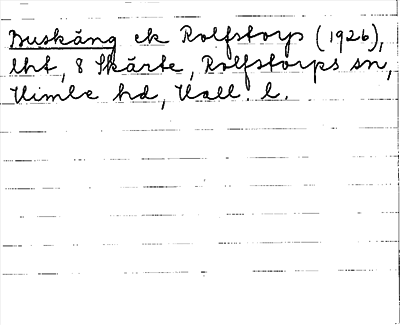 Buskäng ek Rolfstorp (1926),
lht, 8 Skärte, Rolfstorps sn,
Himle hd, Hall. l.